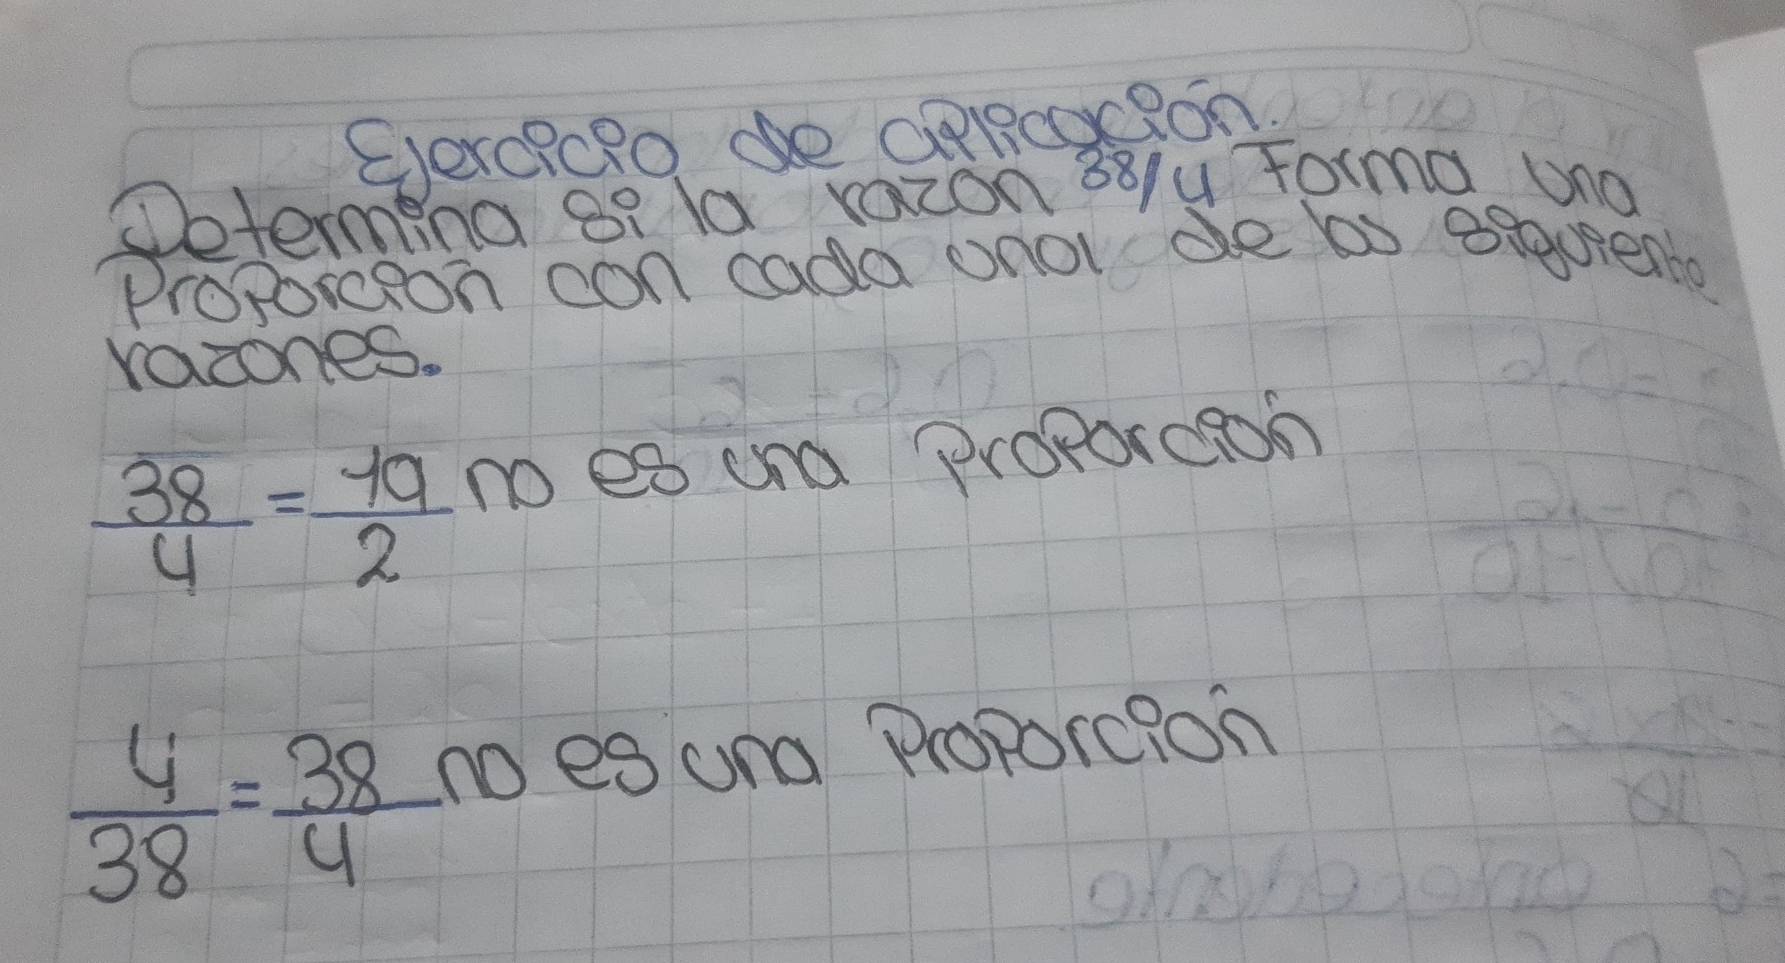 Ejercicio de aplicación.
Determina si la razon 38/4 Forma una
Proporción con cada una de las siguiente
razones.
38/4 = 19/2 no es una Proporción
4/38 = 38/4 no es una Proporción